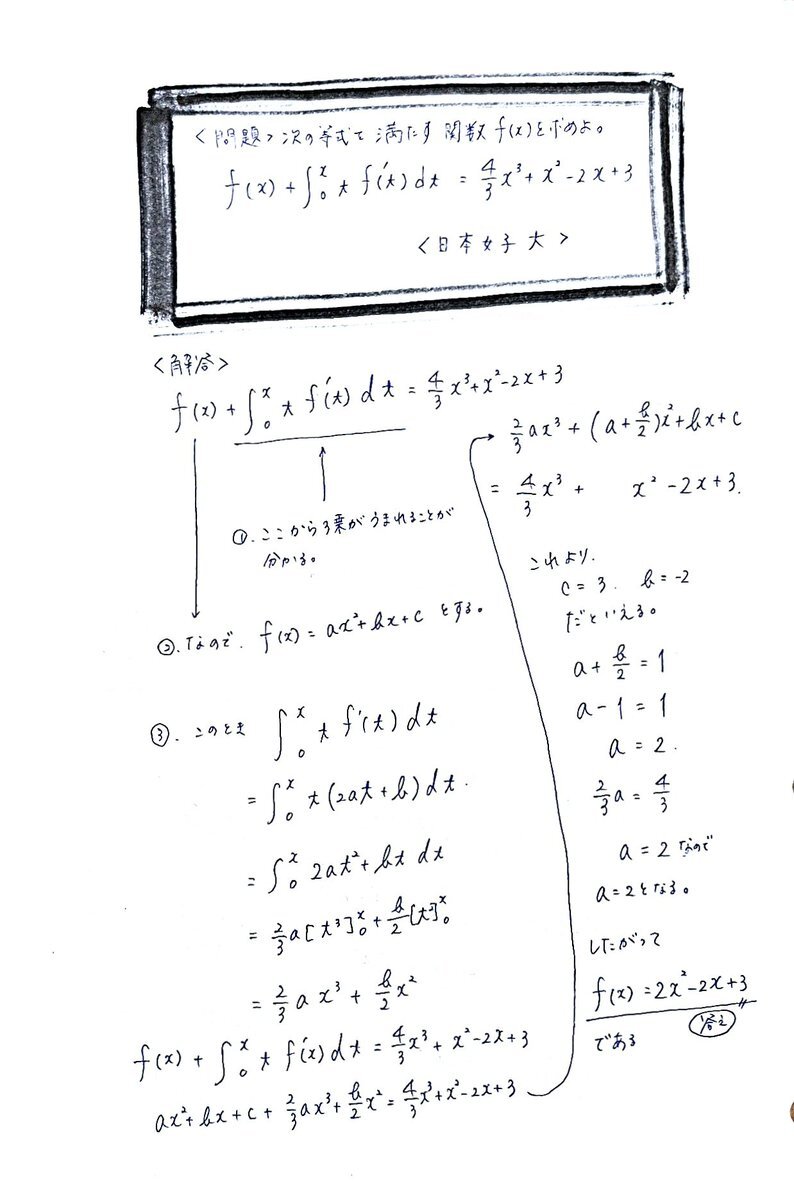 <問題>次の等式で満たす関数 f(x)を求めよ。
f(x) + ∫₀ˣ t f'(t) dt = 4/3 x³ + x² - 2x + 3
<日本女子大>
<解答>
f(x) + ∫₀ˣ t f'(t) dt = 4/3 x³ + x² - 2x + 3
①. ここから3乗がうまれることが
分かる。
②. なので. f(x) = ax² + bx + c とする。
③. このとき ∫₀ˣ t f'(t) dt
= ∫₀ˣ t (2at + b) dt.
= ∫₀ˣ 2at² + bt dt
= 2/3 a [t³]₀ˣ + b/2 [t²]₀ˣ
= 2/3 a x³ + b/2 x²
f(x) + ∫₀ˣ t f'(x) dt = 4/3 x³ + x² - 2x + 3
ax² + bx + c + 2/3 ax³ + b/2 x² = 4/3 x³ + x² - 2x + 3
2/3 ax³ + (a + b/2) x² + bx + c
= 4/3 x³ + x² - 2x + 3.
これより.
c = 3. b = -2
だといえる。
a + b/2 = 1
a - 1 = 1
a = 2.
2/3 a = 4/3
a = 2 なので
a = 2 となる。
したがって
f(x) = 2x² - 2x + 3
答え
である